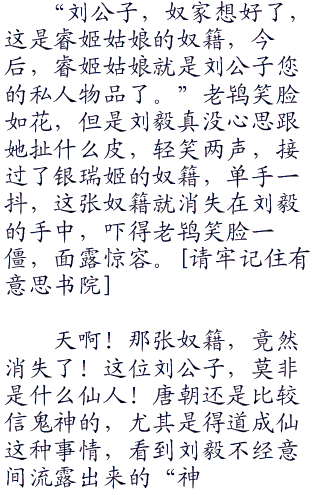 “刘公子，奴家想好了，
这是睿姬姑娘的奴籍，今
后，睿姬姑娘就是刘公子您
的私人物品了。”老鸨笑脸
如花，但是刘毅真没心思跟
她扯什么皮，轻笑两声，接
过了银瑞姬的奴籍，单手一
抖，这张奴籍就消失在刘毅
的手中，吓得老鸨笑脸一
僵，面露惊容。[请牢记住有
意思书院]
天啊！那张奴籍，竟然
消失了！这位刘公子，莫非
是什么仙人！唐朝还是比较
信鬼神的，尤其是得道成仙
这种事情，看到刘毅不经意
间流露出来的“神